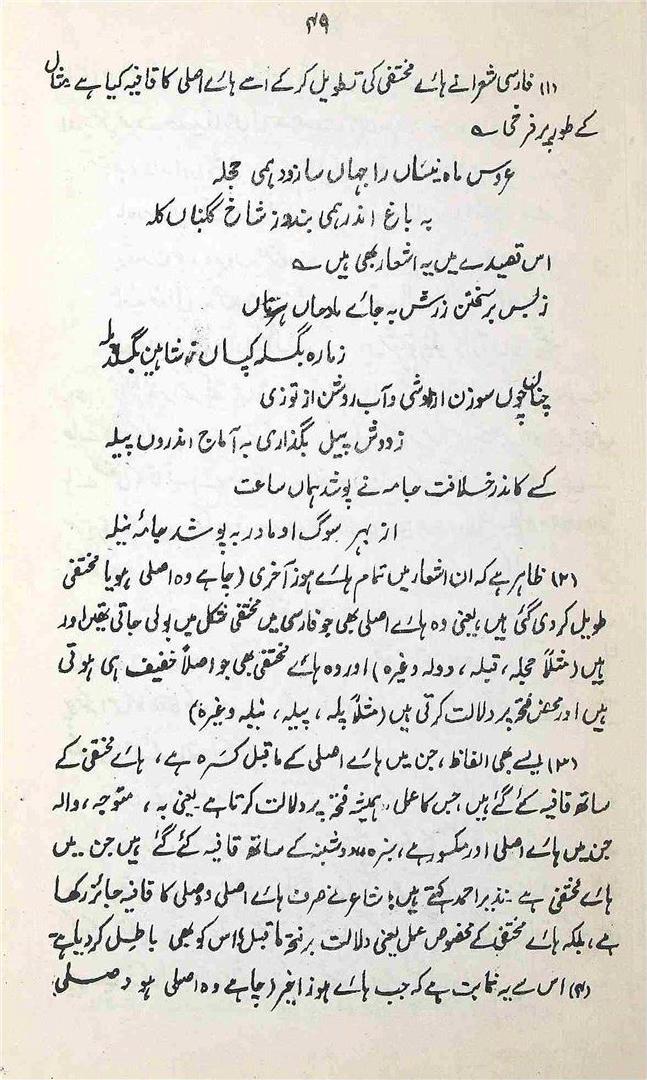 ۴۹
(۱) فارسی شعرا نے ہائے مختفی کی تطویل کر کے اسے ہائے اصلی کا قافیہ کیا ہے مثال
کے طور پر فرخی ؎
عروس ماہ نیساں را جہاں سازد ہمی حجلہ
بہ باغ اندر ہمی بندد ز شاخ گلبناں کلہ
اس قصیدے میں یہ اشعار بھی ہیں ؎
زبس برسختن زرش بہ جائے مادحاں ہزماں
ز مارہ بگسلد کپاں ز شاہین بگسلد پلہ
چناں چوں سوزن از وشی و آب روشن از توزی
ز دوش پیل بگذاری بہ آماج اندروں پیلہ
کسے کاندر خلافت جامہ نے پوشد ہماں ساعت
از بہر سوگ او مادر بہ پوشد جامۂ نیلہ
(۲) ظاہر ہے کہ ان اشعار میں تمام ہائے ہوز آخری (چاہے وہ اصلی ہو یا مختفی
طویل کر دی گئی ہیں، یعنی وہ ہائے اصلی بھی جو فارسی میں مختفی شکل میں بولی جاتی
ہیں (مثلاً حجلہ، قبلہ، دولہ وغیرہ) اور وہ ہائے مختفی بھی جو اصلاً خفیف ہی ہوتی
ہیں اور محض فتحہ پر دلالت کرتی ہیں (مثلاً پلہ، پیلہ، نیلہ وغیرہ)
(۳) ایسے بھی الفاظ، جن میں ہائے اصلی کے ماقبل کسرہ ہے، ہائے مختفی کے
ساتھ قافیہ کئے گئے ہیں جس کا عمل ہمیشہ فتحہ پر دلالت کرتا ہے یعنی بہ، متوجہ، والہ
جن میں ہائے اصلی اور مکسور ہے، بنرہ کے ساتھ قافیہ کئے گئے ہیں جن میں
ہائے مختفی ہے ۔ نذیر احمد کہتے ہیں: شاعر نے صرف ہائے اصلی و وصلی کا قافیہ جائز رکھا
ہے، بلکہ ہائے مختفی کے مخصوص عمل یعنی دلالت بر فتحۂ ماقبل؛ اس کو بھی باطل کر دیا ہے۔
(۴) اس سے یہ ثابت ہے کہ جب ہائے ہوز اخیر (چاہے وہ اصلی ہو وصلی